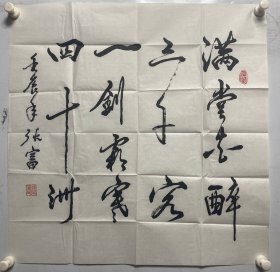 满堂花醉
三千客
一剑霜寒
四十洲
壬辰年张富